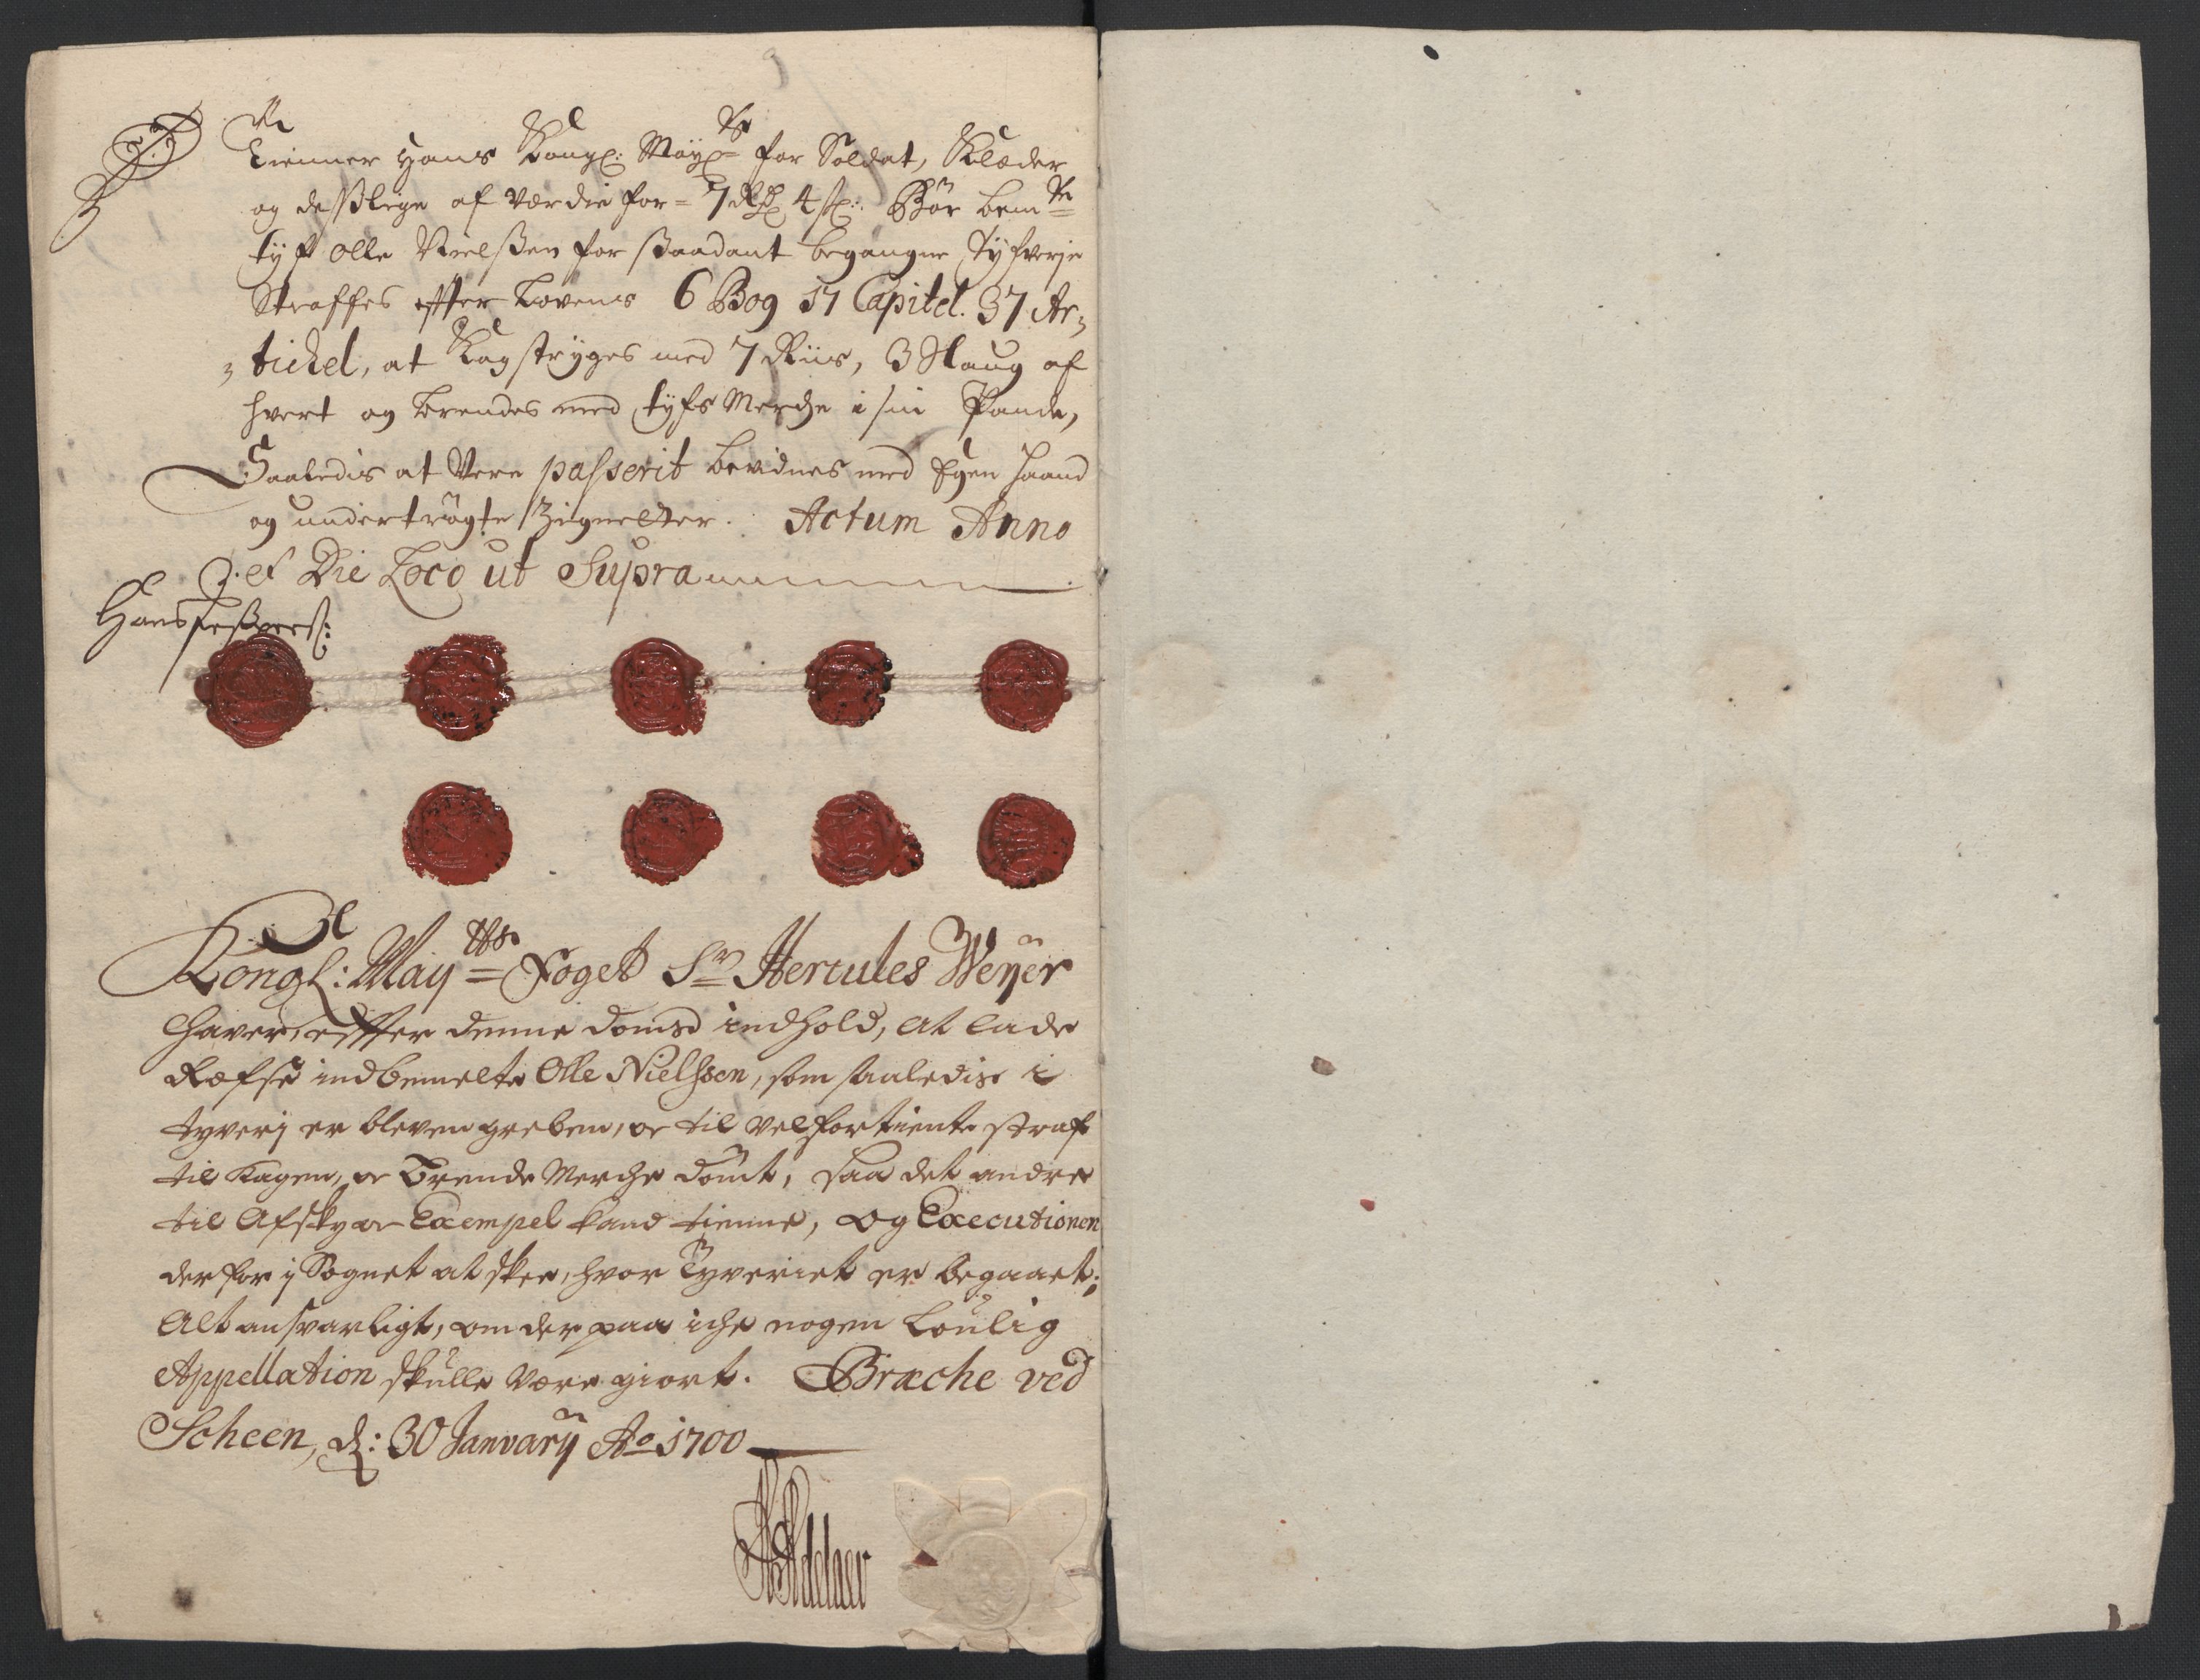 Tienner Hans Kongl: Mayts for Soldat, Klæder
og desslige af Værdie for = 7 Rdr 4 sk: Bør bemte
tyf Olle Nielssen for ssaadant begangne Tyfverje
Straffes effter Lovens 6 Bog 17 Capitel. 37 Ar=
=tichel, at Kagstryges med 7 Riis, 3 Slaug af
hvert og brendes med tyfs Merche i sin Pande,
Saaledis at Vere passerit bevidnes med Egen haand
og undertrögte Zigneetter. Actum Anno
et Die Loco ut Supra
Hans
Kongl: Maytts Foget Sr Hercules Weyer
haver effter denne domss indhold, at lade
Ræfse indbemelte Olle Nielssen, som saaledis i
tyverj er bleven greben, oc til velfortiente straf
til Kagen, oc Brende Merche dömt, saa det andre
til Afsky oc Exempel kand tienne, og Executionen
derfor i Sognet at skee, hvor Tyveriet er begaaet;
Alt ansvarligt, om der paa iche nogen Loulig
Appellation skulle være giort. Bræche ved
Scheen, d: 30 January Ao 1700
Adelaer